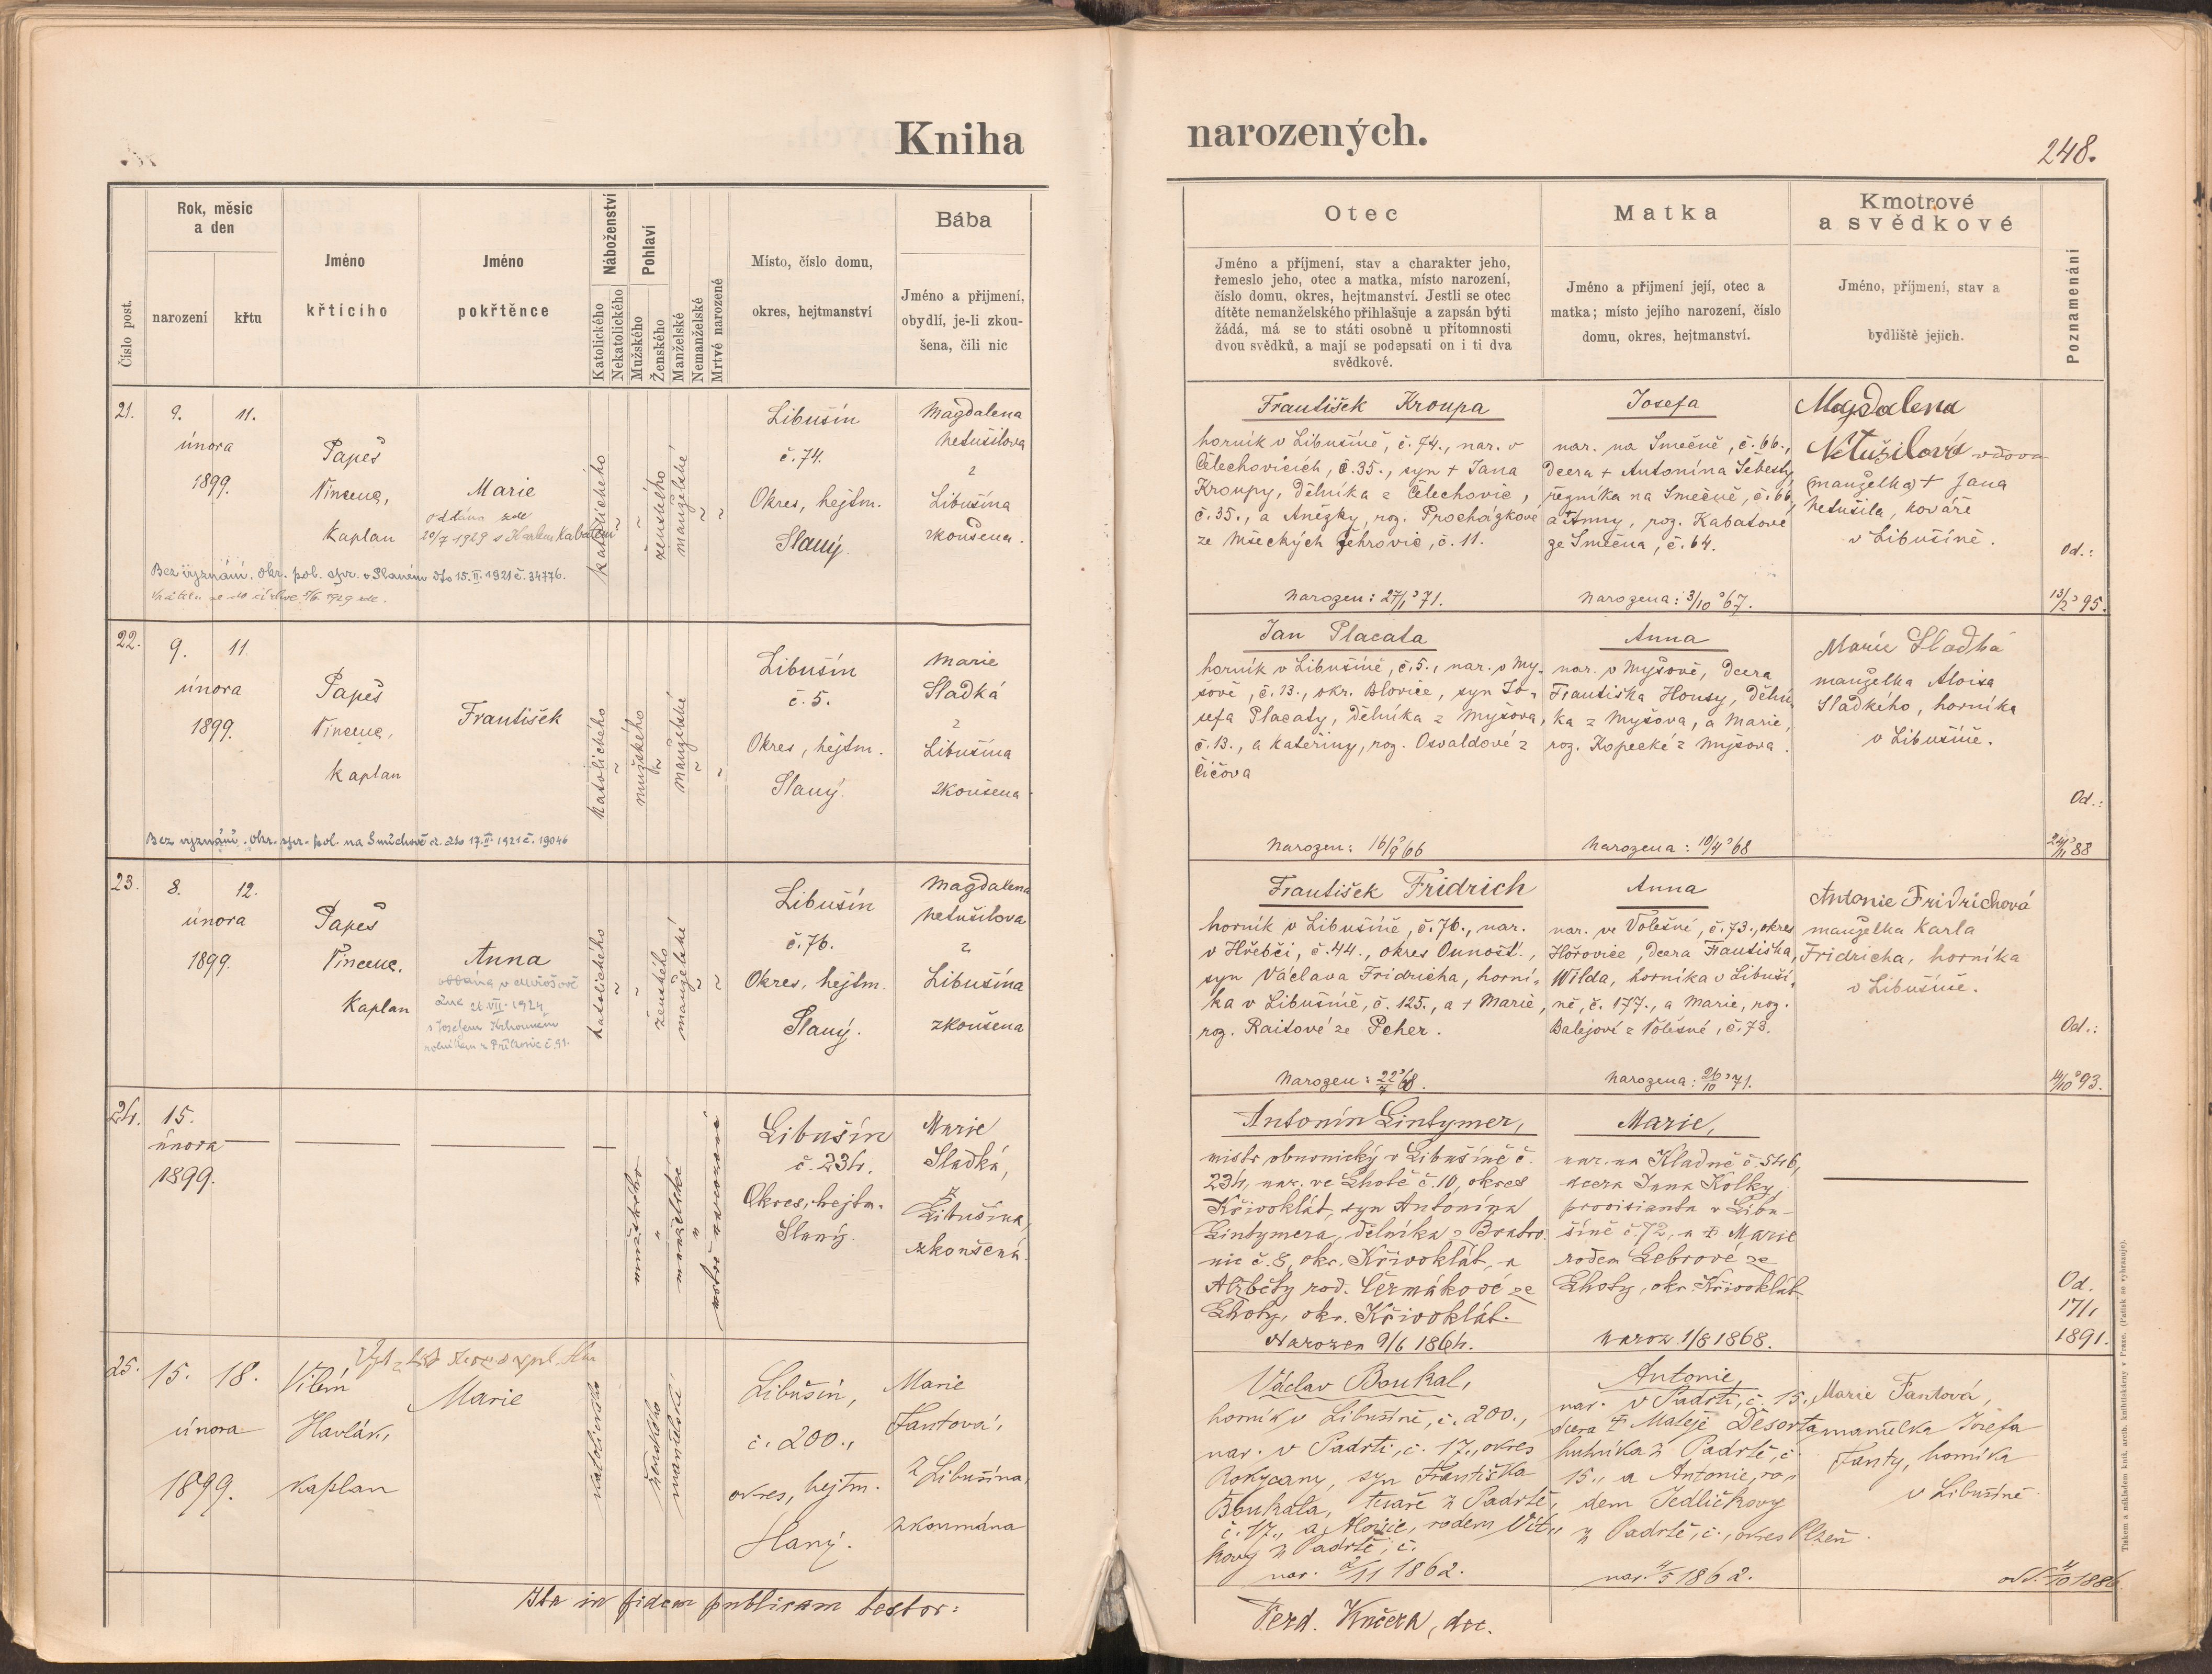 Kniha
narozených.
248.
Číslo post.
Rok, měsíc
a den
narození
křtu
Jméno
křticího
Jméno
pokřtěnce
Náboženství
Katolického
Nekatolického
Pohlaví
Mužského
Ženského
Manželské
Nemanželské
Mrtvě narozené
Místo, číslo domu,
okres, hejtmanství
Bába
Jméno a přijmení,
obydlí, je-li zkou-
šena, čili nic
Otec
Jméno a příjmení, stav a charakter jeho,
řemeslo jeho, otec a matka, místo narození,
číslo domu, okres, hejtmanství. Jestli se otec
dítěte nemanželského přihlašuje a zapsán býti
žádá, má se to státi osobně u přítomnosti
dvou svědků, a mají se podepsati on i ti dva
svědkové.
Matka
Jméno a přijmení její, otec a
matka; místo jejího narození, číslo
domu, okres, hejtmanství.
Kmotrové
a svědkové
Jméno, příjmení, stav a
bydliště jejich.
Poznamenání
21.
9. 11.
února
1899.
Papeš
Vincenc,
kaplan
Marie
oddána zde
20/7 1929 s Karlem Kabátem
Bez vyznání. Okr. pol. spr. v Slaném dto 15.II.1921 č. 34776.
katolického
~
~
ženského
manželské
~
~
Libušín
č. 74.
Okres, hejtm.
Slaný.
Magdalena
Netušilova
z
Libušína
zkoušena.
František Kroupa
horník v Libušíně, č. 74., nar. v
Čelechovicích, č. 35., syn † Jana
Kroupy, dělníka z Čelechovic,
č. 35., a Anežky, roz. Procházkové
ze Mšeckých Žehrovic, č. 11.
Narozen: 27/1 '71.
Josefa
nar. na Smečně, č. 66.,
dcera † Antonína Šebesty,
řezníka na Smečně, č. 66,
a † Anny, roz. Kabátové
ze Smečna, č. 64.
Narozena: 3/10 '67.
Magdalena
Netušilová vdova
(manželka) † Jana
Netušila, kováře
v Libušíně.
Od.:
13/2 '95.
22.
9. 11.
února
1899.
Papeš
Vincenc,
kaplan
František
Bez vyznání. Okr. spr. pol. na Smíchově dto 17.II.1921 č. 19046
katolického
~
mužského
~
manželské
~
~
Libušín
č. 5.
Okres, hejtm.
Slaný.
Marie
Sladká
z
Libušína
zkoušena.
Jan Placata
horník v Libušíně, č. 5., nar. v My-
šově, č. 13., okr. Blovice, syn Jo-
sefa Placaty, dělníka z Myšova,
č. 13., a Kateřiny, roz. Osvaldové z
Číčova
Narozen: 16/9 '66
Anna
nar. v Myšově, dcera
Františka Housy, dělní-
ka z Myšova, a Marie,
roz. Kopecké z Myšova.
Narozena: 10/4 '68
Marie Sladká
manželka Aloisa
Sladkého, horníka
v Libušíně.
Od.:
24/11 '88
23.
8. 12.
února
1899.
Papeš
Vincenc.
kaplan
Anna
dne 26.VII.1924
katolického
~
~
ženského
manželské
~
~
Libušín
č. 76.
Okres, hejtm.
Slaný.
Magdalena
Netušilova
z
Libušína
zkoušena
František Fridrich
horník v Libušíně, č. 76., nar.
v Hřebči, č. 44., okres Ounošť.,
syn Václava Fridricha, horní-
ka v Libušíně, č. 125., a † Marie,
roz. Raitové ze Pcher.
Anna
nar. ve Volešné, č. 73., okres
Hořovice, dcera Františka
Wilda, horníka v Libuší-
ně, č. 177., a Marie, roz.
Balejové z Volešné, č. 73.
Narozena: 26/10 '71.
Antonie Fridrichová
manželka Karla
Fridricha, horníka
v Libušíně.
Od.:
14/10 '93.
24.
15.
února
1899.
mužského
"
manželské
"
mrtvě narozené
Libušín
č. 234.
Okres, hejtm.
Slaný.
Marie
Sladká,
z
Libušína,
zkoušená.
Antonín Lintymer,
mistr obuvnický v Libušíně č.
234, nar. ve Lhotě č. 10, okres
Křivoklát, syn Antonína
Lintymera, dělníka z Bratro-
nic č. 8, okr. Křivoklát, a
Alžběty rod. Čermákové ze
Lhoty, okr. Křivoklát.
Narozen 9/6 1864.
Marie,
nar. na Kladně č. 546,
dcera Jana Kolky,
provisianta v Libu-
šíně č. 72, a † Marie
rodem Lebrové ze
Lhoty, okr. Křivoklát
naroz. 1/8 1868.
Od.
17/1,
1891.
25.
15. 18.
února
1899.
Vilém
Havlák,
kaplan
Marie
katolického
ženského
manželské
Libušín,
č. 200.,
okres, hejtm.
Slaný.
Marie
Fantová,
z Libušína,
zkoumána
Václav Boukal,
horník v Libušíně, č. 200.,
nar. v Padrti, č. 17., okres
Rokycany, syn Františka
Boukala, tesaře z Padrtě,
č. 17., a Aloisie, rodem Vít-
kovy z Padrtě, č.
nar. 2/11 1862.
Antonie,
nar. v Padrti, č. 15.,
dcera † Matěje Dešorta
hutníka z Padrtě, č.
15., a Antonie, ro-
dem Jedličkovy
z Padrtě, č., okres Plzeň.
nar. 4/5 1862.
Marie Fantová,
manželka Josefa
Fanty, horníka
v Libušíně.
odd. 4/10 1886
Ita in fidem publicam testor:
Ferd. Kučera, děk.
Tiskem a nákladem knih. arcib. knihtiskárny v Praze. (Patisk se vyhrazuje).